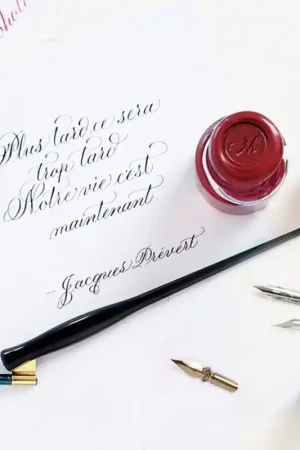 Plus tard ce sera
trop tard
Notre vie c'est
maintenant
- Jacques Prévert
M